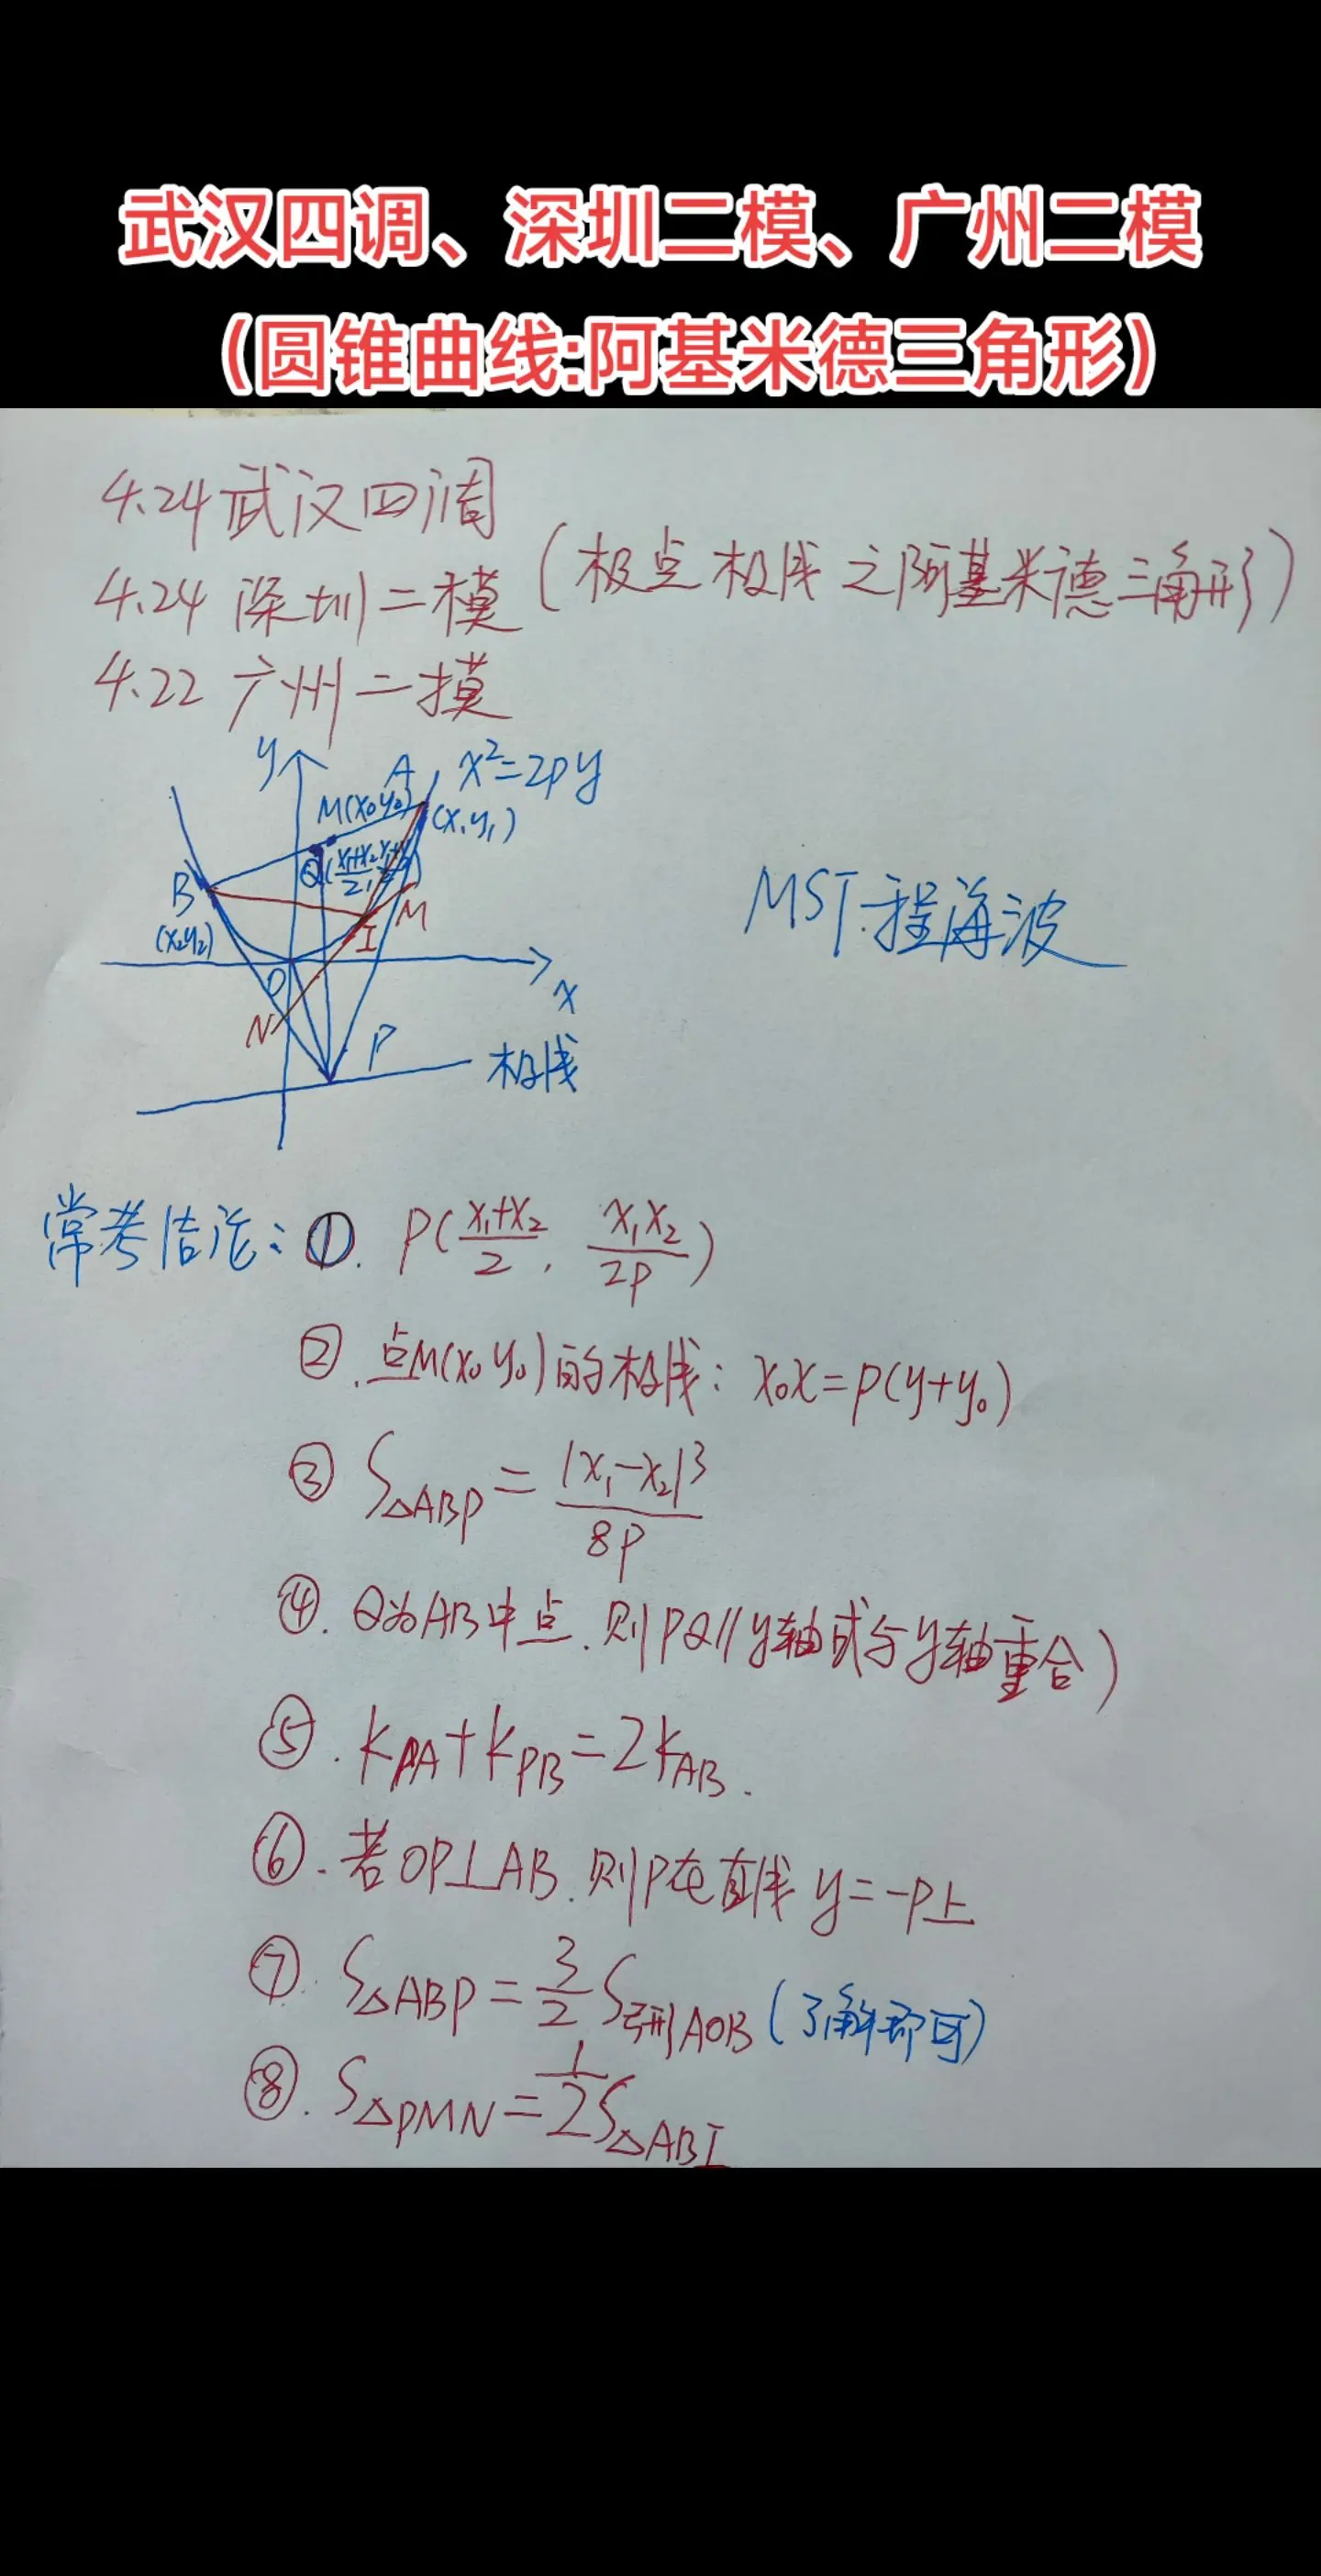 武汉四调、深圳二模、广州二模
(圆锥曲线:阿基米德三角形)
4.24武汉四调
4.24 深圳二模
(极点极线之阿基米德三角形)
4.22 广州二摸
y
A
x²=2py
M(x₀y₀)
(x₁y₁)
Q(x₁+x₂/2,
B
M
I
(x₂y₂)
O
x
N
P
极线
MST.程海波
常考结论: ①. P(x₁+x₂/2, x₁x₂/2p)
②.点M(x₀y₀)的极线: x₀x=p(y+y₀)
③ S△ABP=|x₁-x₂|³/8p
④. Q为AB中点.则PQ//y轴或与y轴重合)
⑤. kPA+kPB=2kAB.
⑥.若OP⊥AB.则P在直线y=-p上
⑦. S△ABP=3/2S弓形AOB(了解即可)
⑧. S△PMN=1/2S△ABI